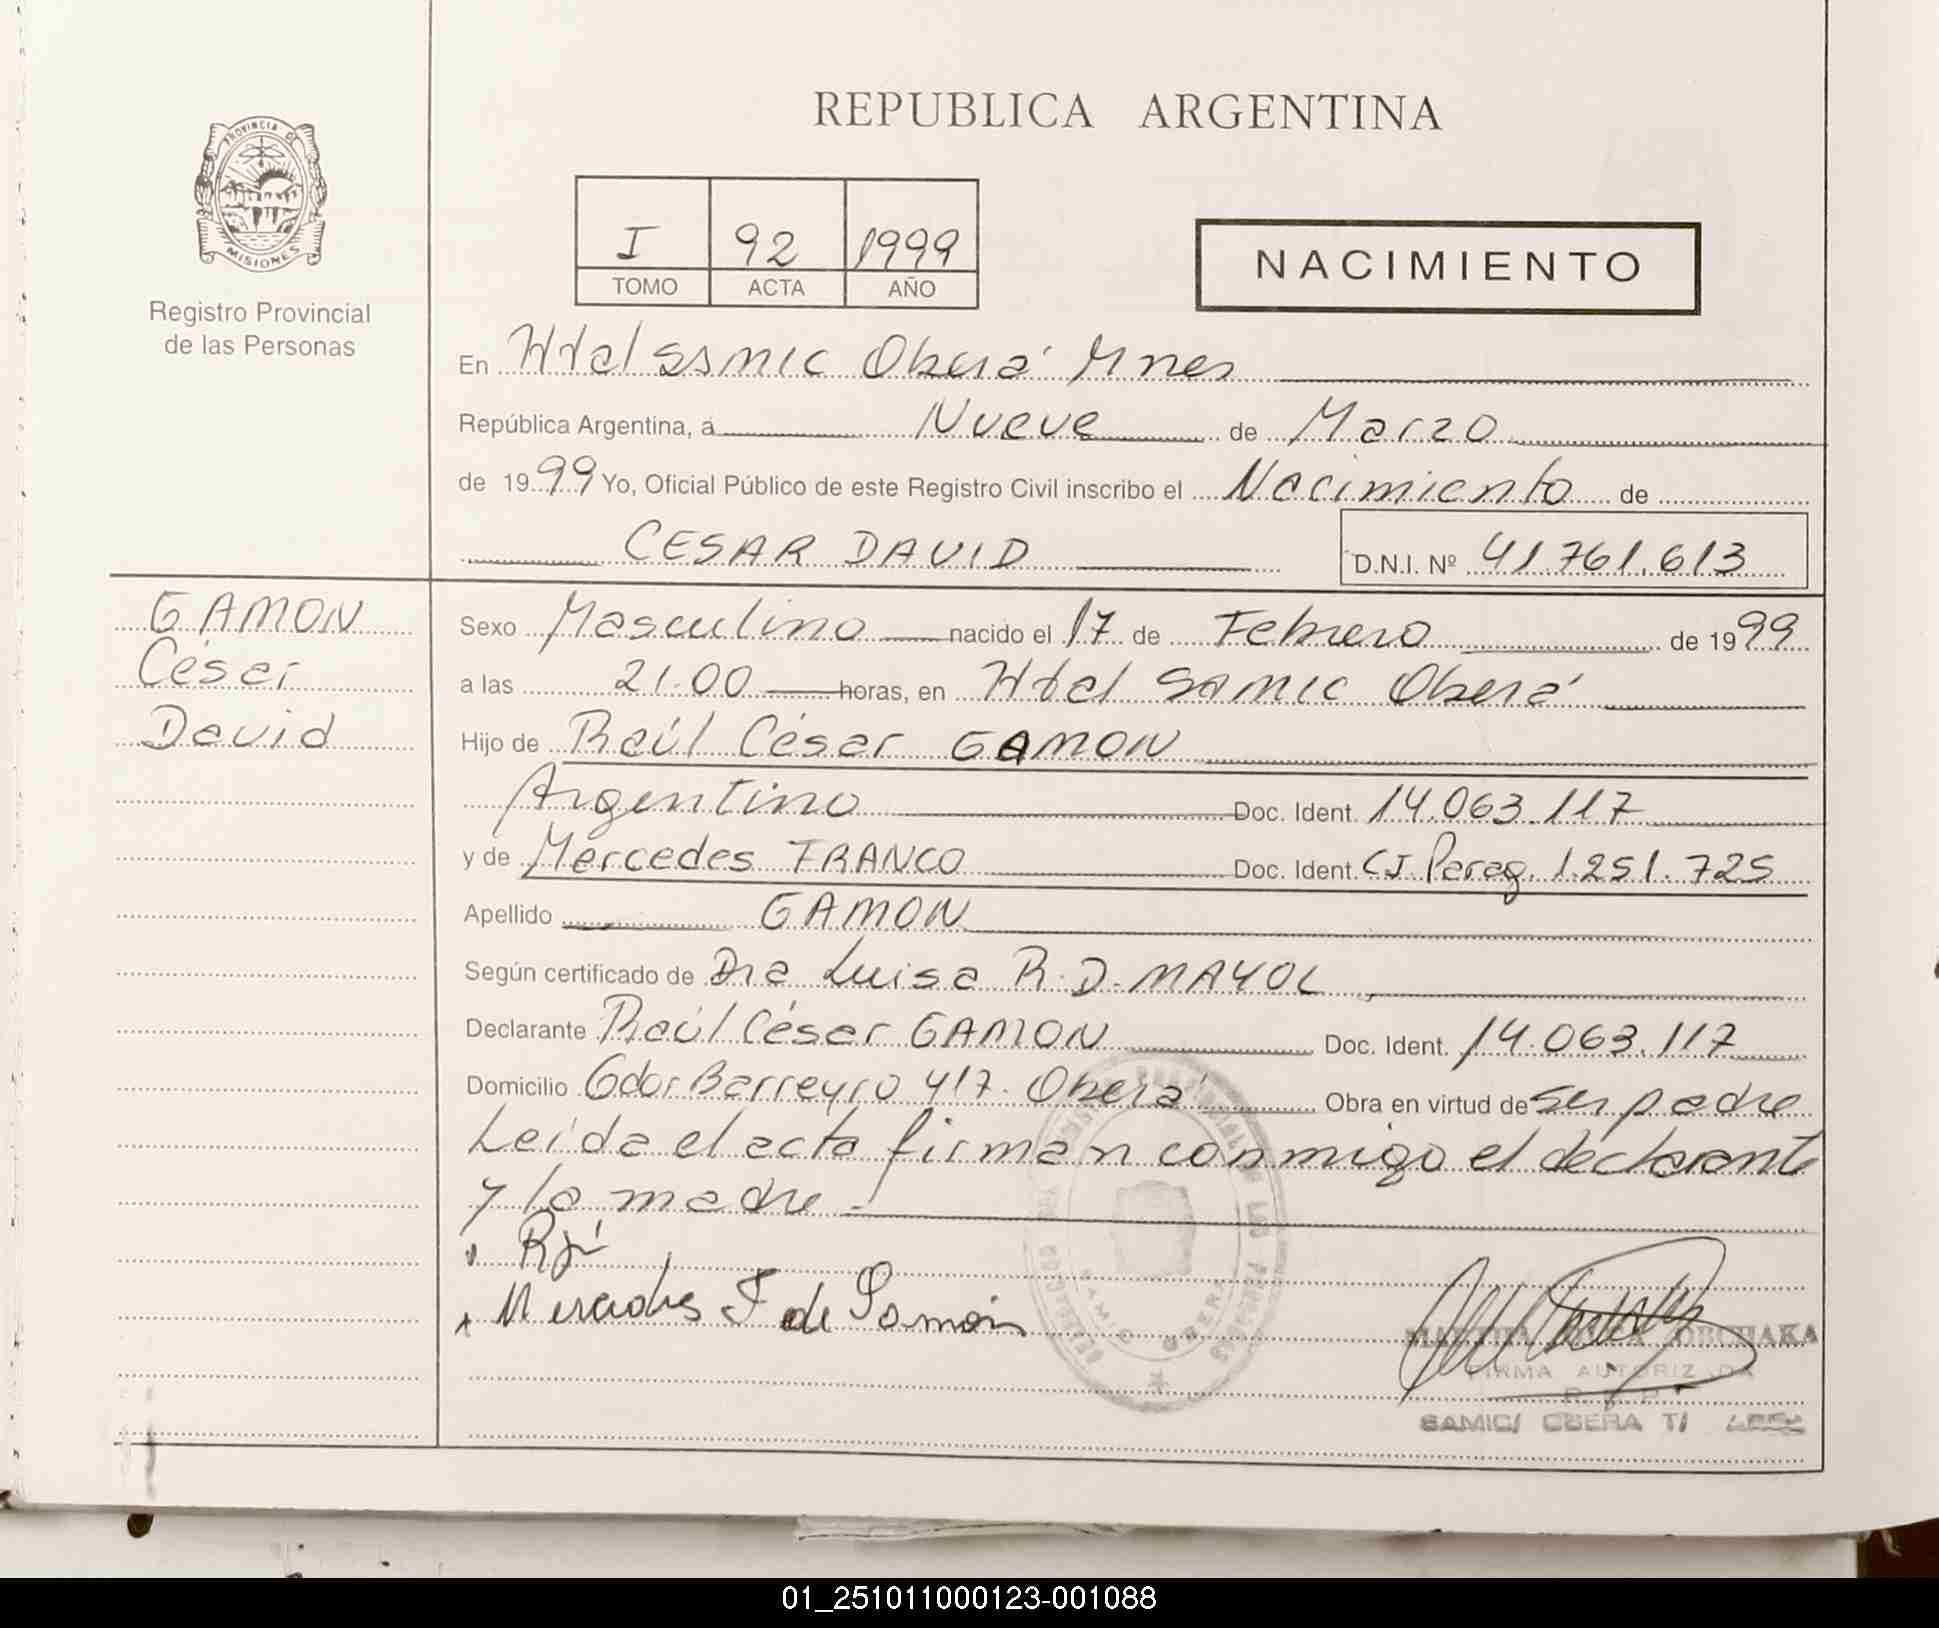 REPUBLICA ARGENTINA
PROVINCIA DE
MISIONES
Registro Provincial
de las Personas
I 92 1999
TOMO ACTA AÑO
NACIMIENTO
En Htal SAMIC Oberá Mnes
República Argentina, a Nueve de Marzo
de 1999 Yo, Oficial Público de este Registro Civil inscribo el Nacimiento de
CESAR DAVID D.N.I. Nº 41.761.613
GAMON
César
David
Sexo Masculino nacido el 17 de Febrero de 1999
a las 21.00 horas, en Htal SAMIC Oberá
Hijo de Raúl César GAMON
Argentino Doc. Ident. 14.063.117
y de Mercedes FRANCO Doc. Ident. CI Parag. 1.251.725
Apellido GAMON
Según certificado de Dra Luisa R. D. MAYOL
Declarante Raúl César GAMON Doc. Ident. 14.063.117
Domicilio Gdor Barreyro 417. Oberá Obra en virtud de ser padre
Leída el acta firman conmigo el declarante
y la madre
Mercedes F de Gamón
OBCHAKA
FIRMA AUTORIZADA
SAMIC OBERA
01_251011000123-001088